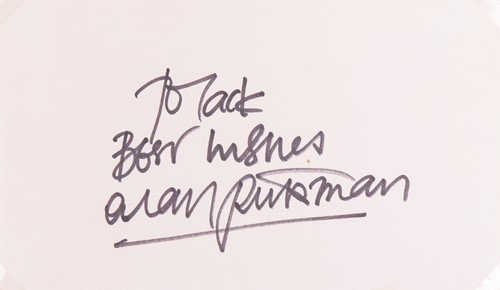 To Jack
Best wishes
Alan Rickman